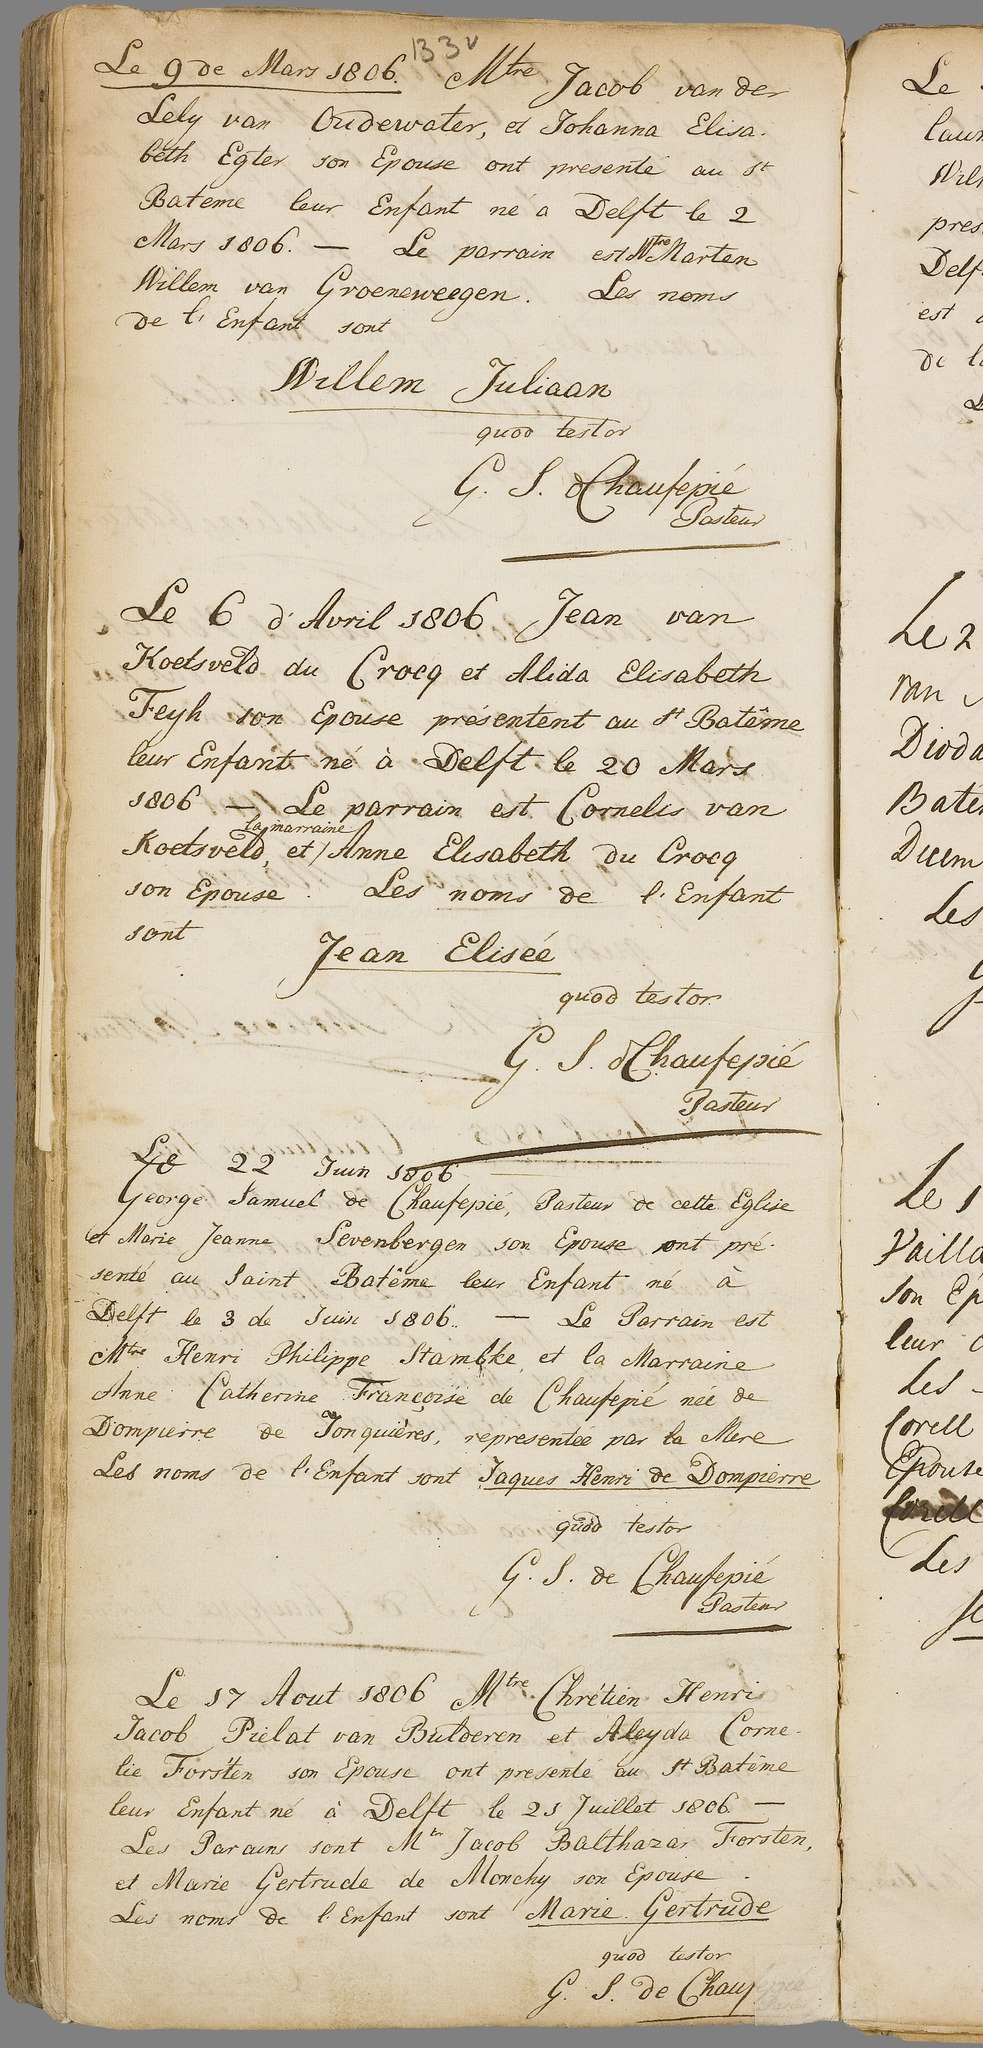 133v
Le 9 de Mars 1806. Mtre Jacob van der
Lely van Oudewater, et Johanna Elisa-
beth Egter son Epouse ont presenté au St
Bateme leur Enfant né a Delft le 2
Mars 1806. — Le parrain est Mtre Marten
Willem van Groeneweegen. Les noms
de l'Enfant sont
Willem Juliaan
quod testor
G. S. d Chaufepié
Pasteur
Le 6 d'Avril 1806 Jean van
Koetsveld du Crocq et Alida Elisabeth
Feyh son Epouse présentent au St Batême
leur Enfant né à Delft le 20 Mars
1806 — Le parrain est Cornelis van
la marraine
Koetsveld, et / Anne Elisabeth du Crocq
son Epouse. Les noms de l'Enfant
sont
Jean Elisée
quod testor
G. S. d Chaufepié
Pasteur
Le 22 Juin 1806
George Samuel de Chaufepié, Pasteur de cette Eglise
et Marie Jeanne Sevenbergen son Epouse ont pré-
senté au Saint Batême leur Enfant né à
Delft le 3 de Juin 1806. — Le Parrain est
Mtre Henri Philippe Stambke, et la Marraine
Anne Catherine Françoise de Chaufepié née de
Dompierre de Jonquières, representée par la Mere
Les noms de l'Enfant sont Jaques Henri de Dompierre
quod testor
G. S. de Chaufepié
Pasteur
Le 17 Aout 1806 Mtre Chrétien Henri
Jacob Pielat van Bulderen et Aleyda Corne-
lie Forsten son Epouse ont presenté au St Batême
leur Enfant né à Delft le 21 Juillet 1806 —
Les Parains sont Mtr Jacob Balthazar Forsten,
et Marie Gertrude de Monchy son Epouse.
Les noms de l'Enfant sont Marie Gertrude
quod testor
G. S. de Chauf
Le
Delf
est
de l
Le 2
van
Dioda
Bate
Decem
Les
Le 1
Vailla
son Ep
leur
des
Corell
Epouse
Les